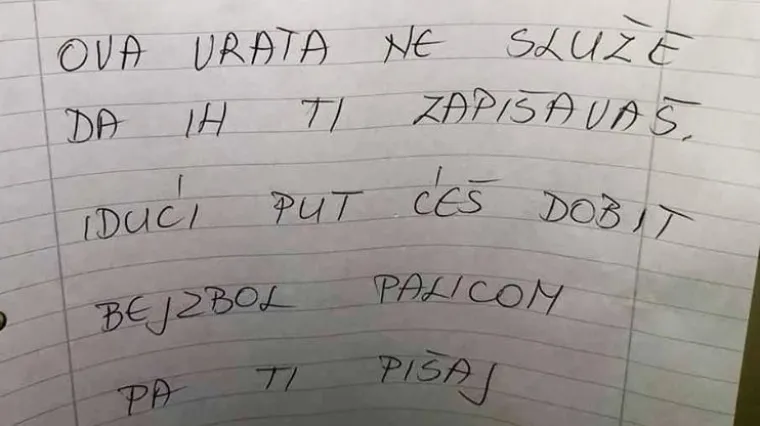 OVA VRATA NE SLUŽE
DA IH TI ZAPIŠAVAŠ.
IDUĆI PUT ĆEŠ DOBIT
BEJZBOL PALICOM
PA TI PIŠAJ